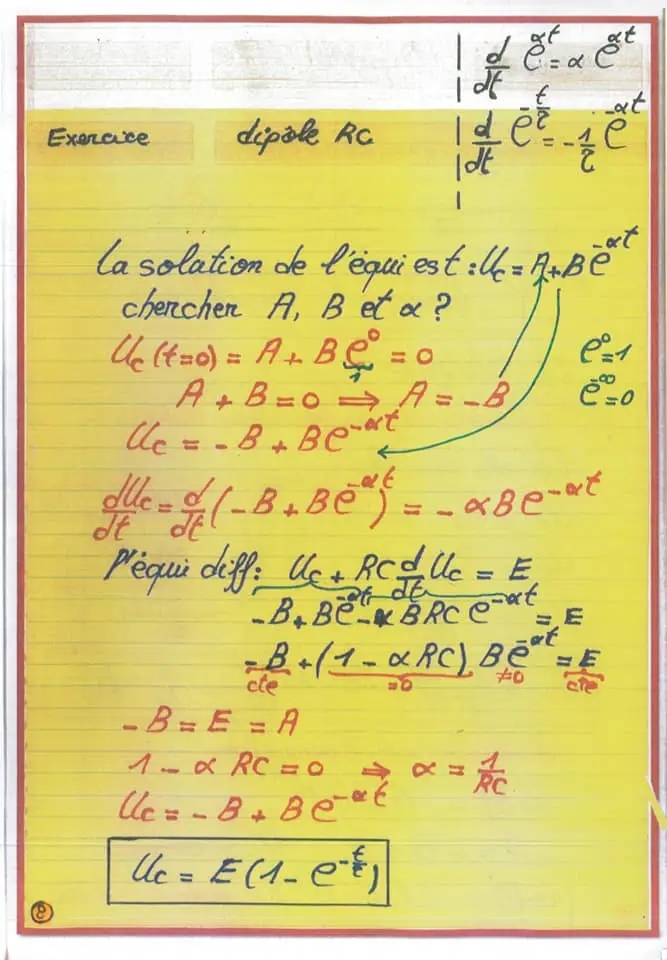 d/dt e^αt = α e^αt
Exercice dipôle RC
d/dt e^-t/τ = -1/τ e^-αt
La solution de l'équi est : Uc = A + B e^-αt
chercher A, B et α ?
Uc (t=0) = A + B e^0 = 0
1
e^0 = 1
A + B = 0 ⇒ A = -B
e^-∞ = 0
Uc = -B + B e^-αt
dUc/dt = d/dt (-B + B e^-αt) = -αB e^-αt
l'équi diff : Uc + RC d/dt Uc = E
-B + B e^-αt - αBRC e^-αt = E
-B + (1 - αRC) B e^-αt = E
cte =0 ≠0 cte
-B = E = A
1 - α RC = 0 ⇒ α = 1/RC
Uc = -B + B e^-αt
Uc = E (1 - e^-t/τ)
8